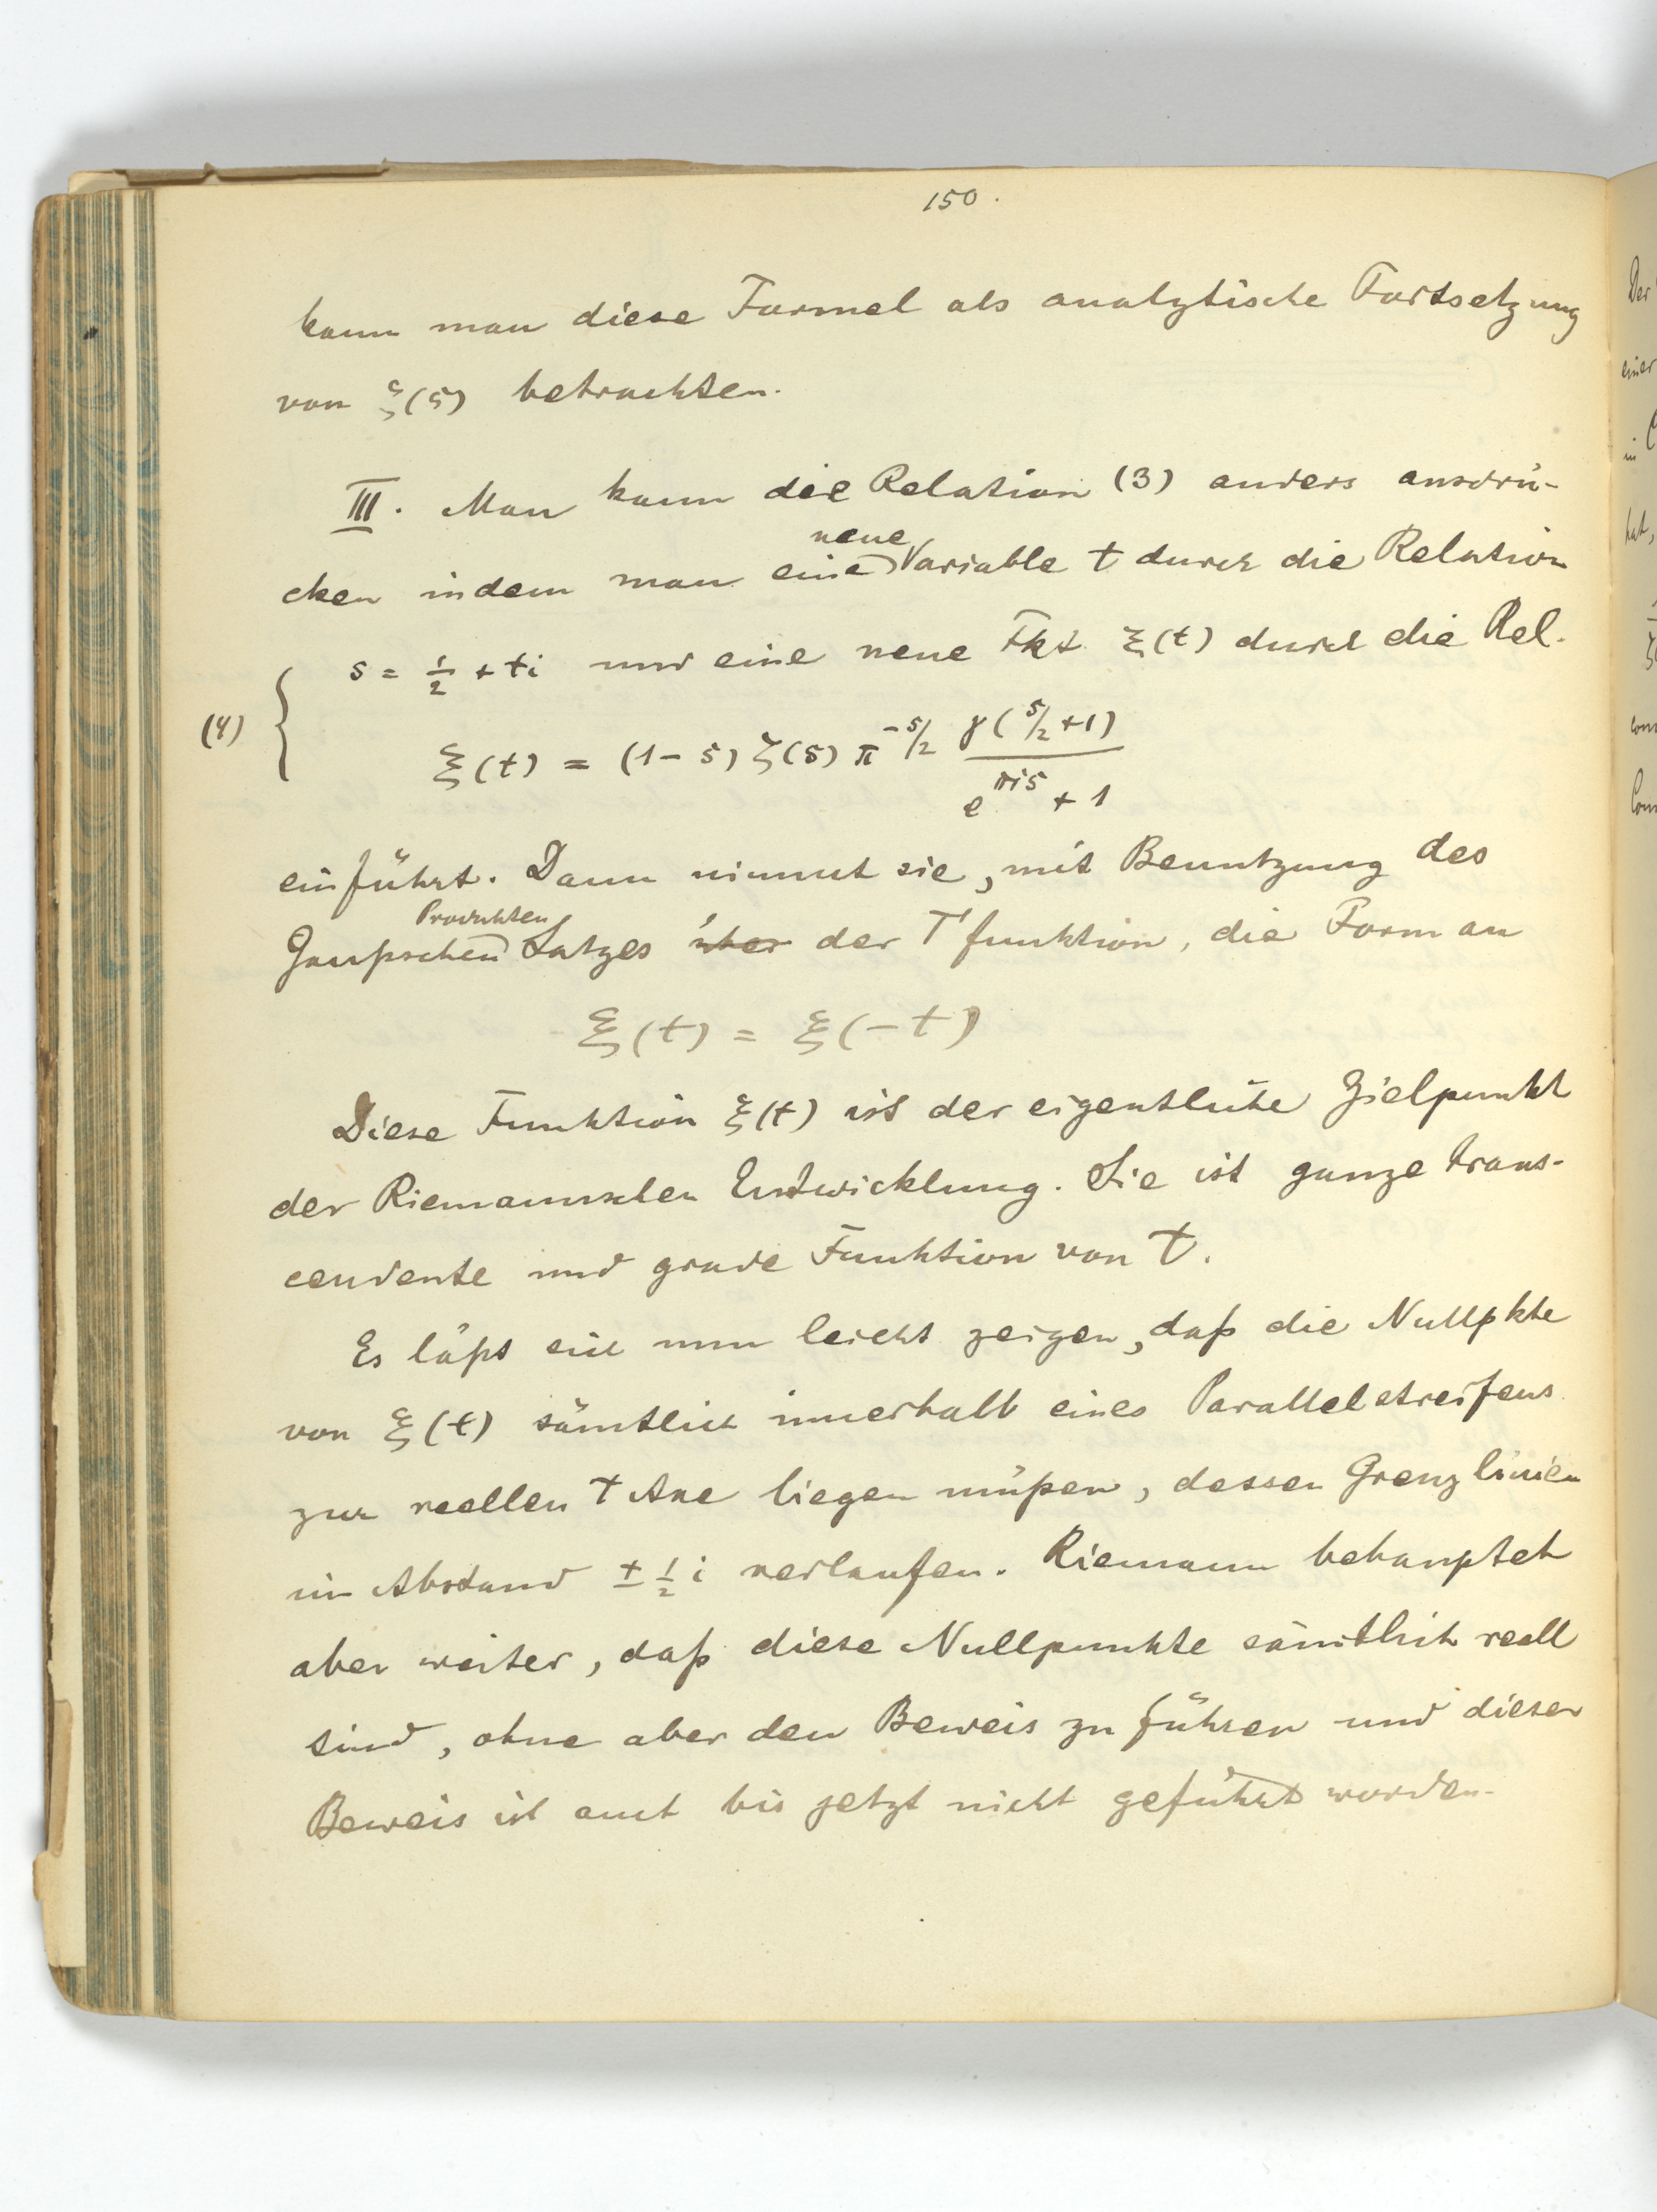 150.
kann man diese Formel als analytische Fortsetzung
von ζ(s) betrachten.
III. Man kann die Relation (3) anders ausdrü-
cken indem man eine neue Variable t durch die Relation
s = 1/2 + ti und eine neue Fkt ξ(t) durch die Rel.
(4) { ξ(t) = (1-s) ζ(s) π^{-s/2} γ(s/2+1) / (e^{πis} + 1)
einführt. Dann nimmt sie, mit Benutzung des
Gaußschen Produkten Satzes über der Γfunktion, die Form an
ξ(t) = ξ(-t)
Diese Funktion ξ(t) ist der eigentliche Zielpunkt
der Riemannschen Entwicklung. Sie ist ganze trans-
cendente und grade Funktion von t.
Es läßt sich nun leicht zeigen, daß die Nullpkte
von ξ(t) sämtlich innerhalb eines Parallelstreifens
zur reellen t Axe liegen müßen, dessen Grenzlinien
im Abstand ± 1/2 i verlaufen. Riemann behauptet
aber weiter, daß diese Nullpunkte sämtlich reell
sind, ohne aber den Beweis zu führen und dieser
Beweis ist auch bis jetzt nicht geführt worden.
Der
einer
in
hat,